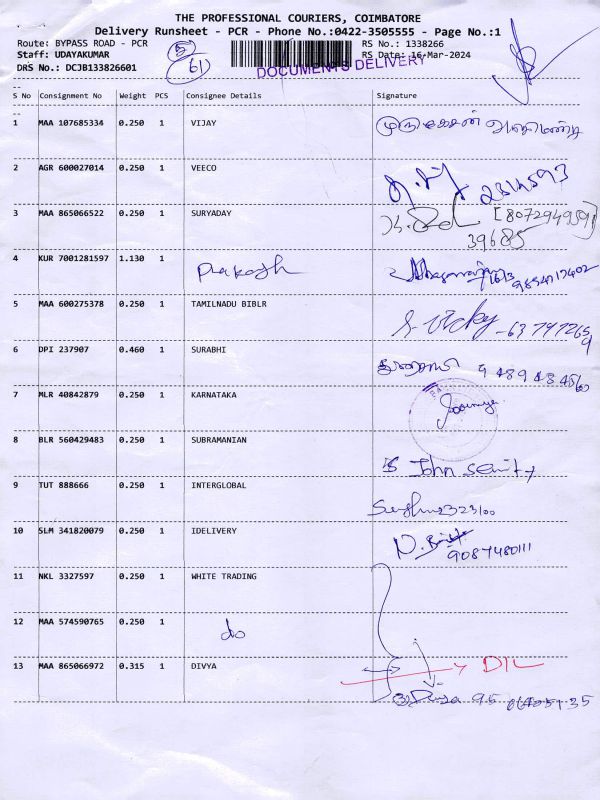 THE PROFESSIONAL COURIERS, COIMBATORE
Delivery Runsheet - PCR - Phone No.:0422-3505555 - Page No.:1
Route: BYPASS ROAD - PCR
RS No.: 1338266
Staff: UDAYAKUMAR
RS Date: 16-Mar-2024
DRS No.: DCJB133826601
61
DOCUMENTS DELIVERY
S No Consignment No Weight PCS Consignee Details Signature
1 MAA 107685334 0.250 1 VIJAY
2 AGR 600027014 0.250 1 VEECO
3 MAA 865066522 0.250 1 SURYADAY
39685
4 KUR 7001281597 1.130 1 Prakash
5 MAA 600275378 0.250 1 TAMILNADU BIBLR
S. Vicky
6 DPI 237907 0.460 1 SURABHI
7 MLR 40842879 0.250 1 KARNATAKA
8 BLR 560429483 0.250 1 SUBRAMANIAN
John
9 TUT 888666 0.250 1 INTERGLOBAL
10 SLM 341820079 0.250 1 IDELIVERY
9087480111
11 NKL 3327597 0.250 1 WHITE TRADING
12 MAA 574590765 0.250 1 do
13 MAA 865066972 0.315 1 DIVYA